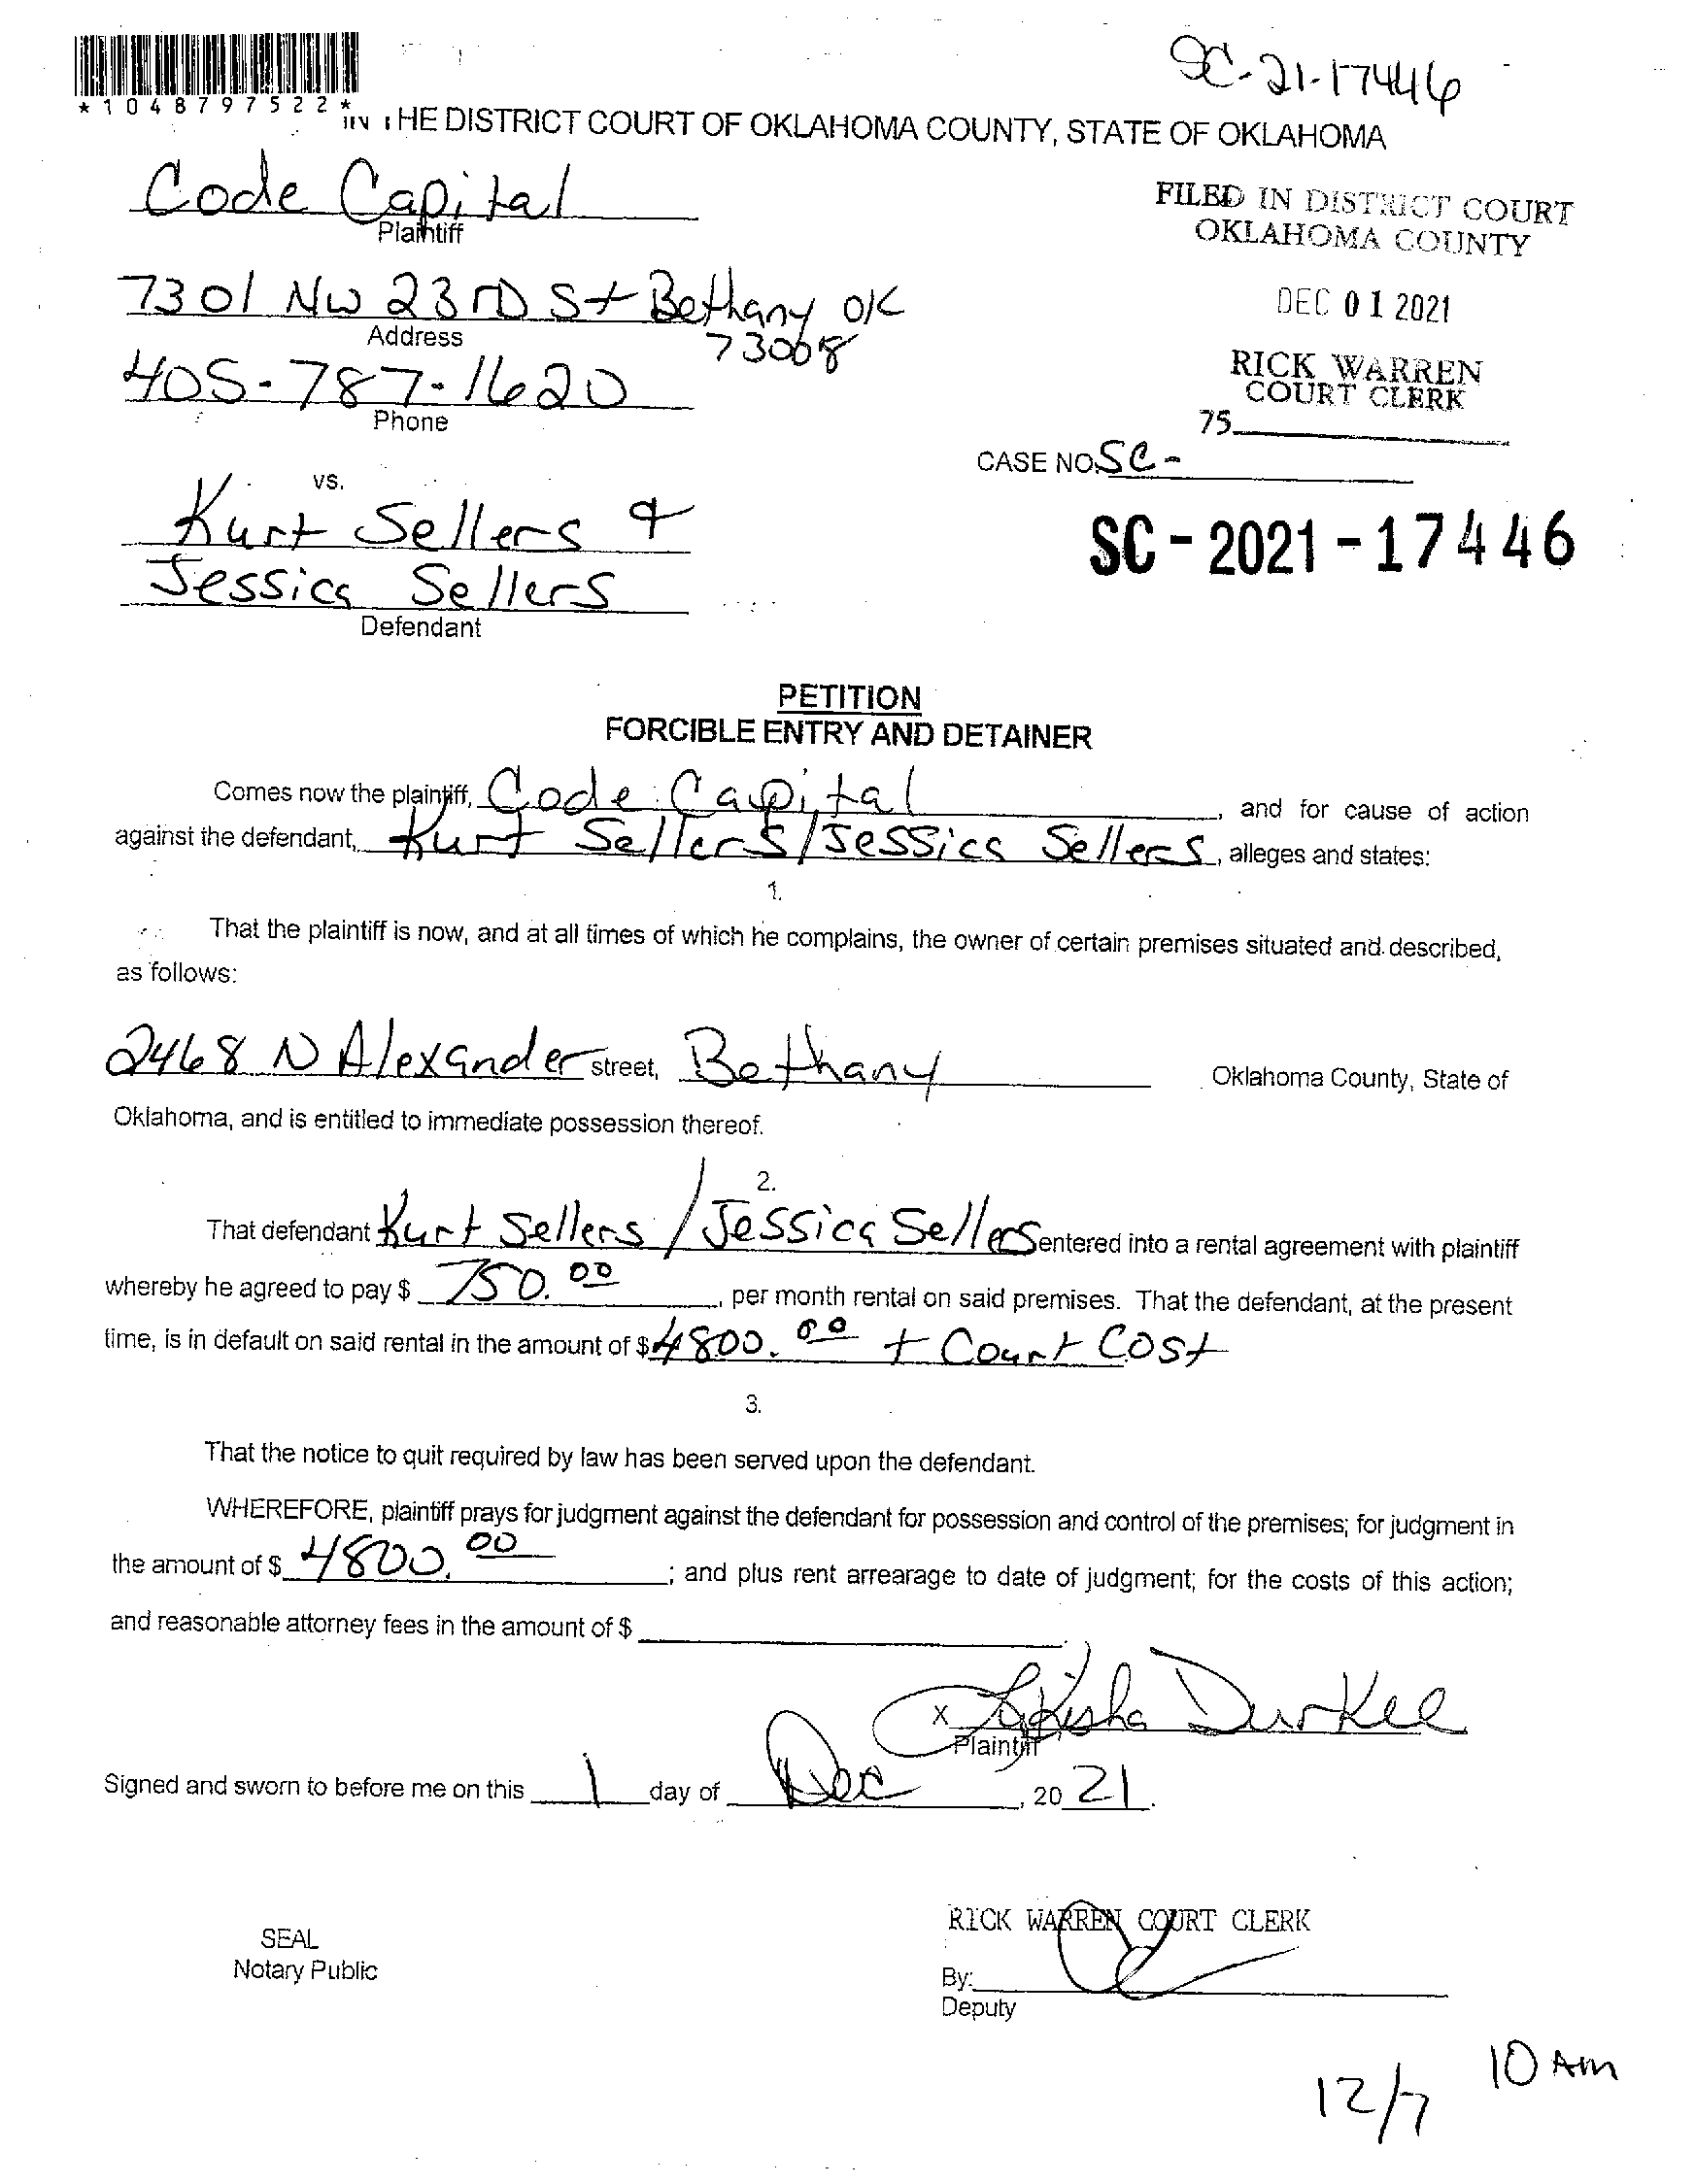 SC-21-17446
*1048797522*
IN THE DISTRICT COURT OF OKLAHOMA COUNTY, STATE OF OKLAHOMA
Code Capital
Plaintiff
FILED IN DISTRICT COURT
OKLAHOMA COUNTY
7301 NW 23RD St Bethany OK
73008
Address
DEC 01 2021
405-787-1620
Phone
RICK WARREN
COURT CLERK
75
CASE NO. SC-
vs.
Kurt Sellers &
Jessica Sellers
Defendant
SC-2021-17446
PETITION
FORCIBLE ENTRY AND DETAINER
Comes now the plaintiff, Code Capital, and for cause of action
against the defendant, Kurt Sellers/Jessica Sellers, alleges and states:
1.
That the plaintiff is now, and at all times of which he complains, the owner of certain premises situated and described,
as follows:
2468 N Alexander street, Bethany Oklahoma County, State of
Oklahoma, and is entitled to immediate possession thereof.
2.
That defendant Kurt Sellers / Jessica Sellers entered into a rental agreement with plaintiff
whereby he agreed to pay $ 750.00, per month rental on said premises. That the defendant, at the present
time, is in default on said rental in the amount of $ 4800.00 + Court Cost
3.
That the notice to quit required by law has been served upon the defendant.
WHEREFORE, plaintiff prays for judgment against the defendant for possession and control of the premises; for judgment in
the amount of $ 4800.00; and plus rent arrearage to date of judgment; for the costs of this action;
and reasonable attorney fees in the amount of $
X Durkee
Plaintiff
Signed and sworn to before me on this 1 day of Dec, 20 21.
RICK WARREN COURT CLERK
SEAL
Notary Public
By:
Deputy
12/7 10 AM